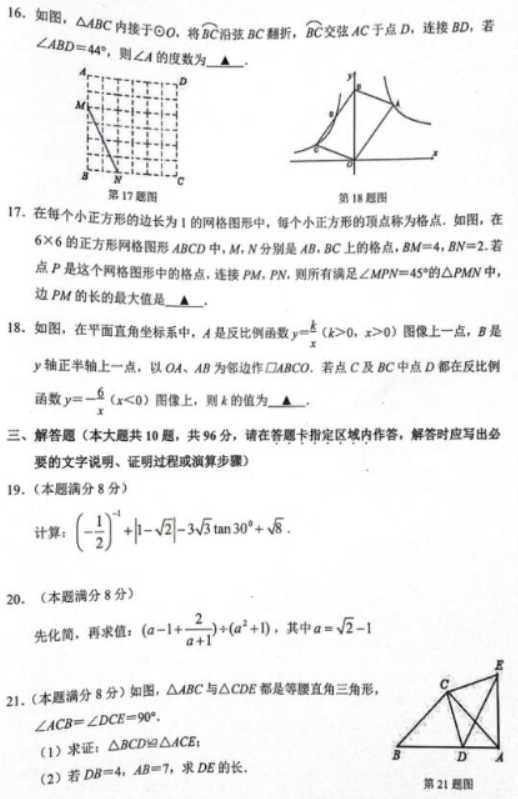 16. 如图，△ABC 内接于⊙O，将BC沿弦 BC 翻折，BC交弦 AC 于点 D，连接 BD，若
∠ABD=44°，则∠A 的度数为 ▲ .
A
D
M
B
N
C
第 17 题图
y
B
A
D
C
O
x
第 18 题图
17. 在每个小正方形的边长为 1 的网格图形中，每个小正方形的顶点称为格点．如图，在
6×6 的正方形网格图形 ABCD 中，M，N 分别是 AB，BC 上的格点，BM=4，BN=2．若
点 P 是这个网格图形中的格点，连接 PM，PN，则所有满足∠MPN=45°的△PMN 中，
边 PM 的长的最大值是 ▲ .
18. 如图，在平面直角坐标系中，A 是反比例函数 y=k/x（k>0，x>0）图像上一点，B 是
y 轴正半轴上一点，以 OA、AB 为邻边作□ABCO．若点 C 及 BC 中点 D 都在反比例
函数 y=-6/x（x<0）图像上，则 k 的值为 ▲ .
三、解答题（本大题共 10 题，共 96 分，请在答题卡指定区域内作答，解答时应写出必
要的文字说明、证明过程或演算步骤）
19.（本题满分 8 分）
计算：(-1/2)^-1+|1-√2|-3√3 tan30°+√8 .
20. （本题满分 8 分）
先化简，再求值：(a-1+2/(a+1))÷(a²+1)，其中 a=√2-1
21.（本题满分 8 分）如图，△ABC 与△CDE 都是等腰直角三角形，
∠ACB=∠DCE=90°.
（1）求证：△BCD≌△ACE；
（2）若 DB=4，AB=7，求 DE 的长．
E
C
B
D
A
第 21 题图